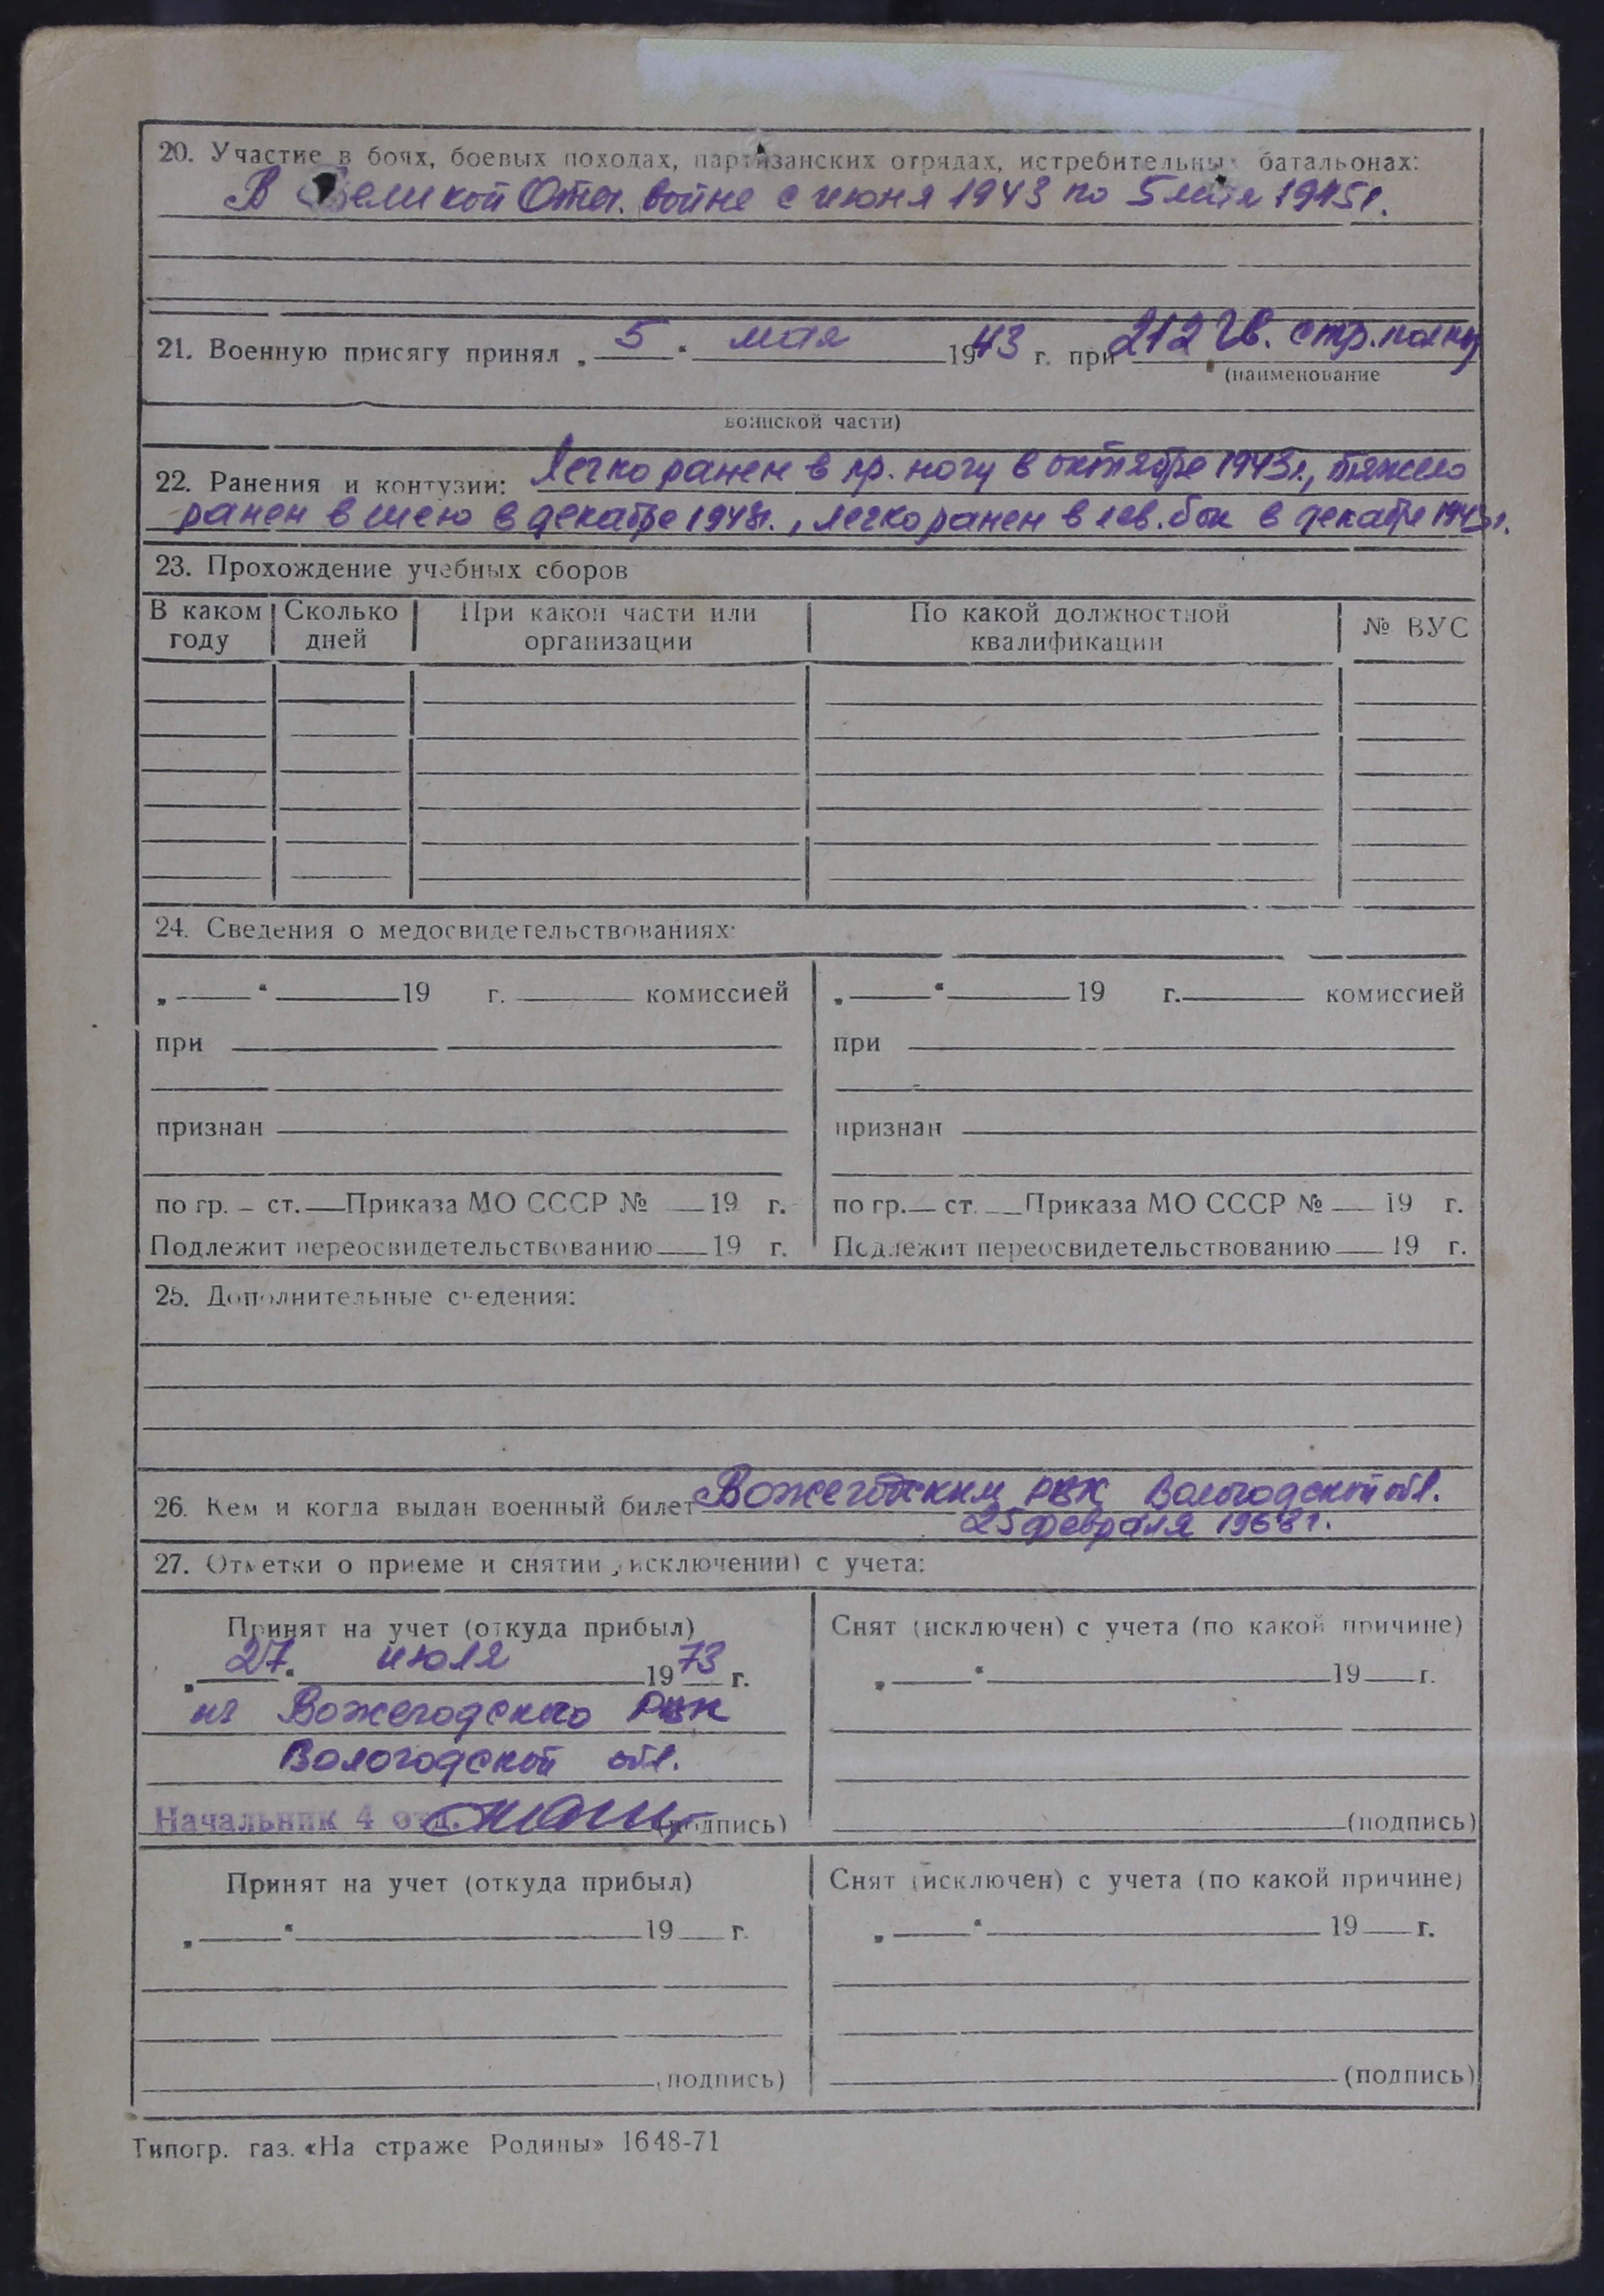 20. Участие в боях, боевых походах, партизанских отрядах, истребительных батальонах:
В Великой Отеч. войне с июня 1943 по 5 мая 1945 г.
21. Военную присягу принял „ 5 “ мая 1943 г. при 212 Гв. стр. полку
(наименование
воинской части)
22. Ранения и контузии: Легко ранен в пр. ногу в октябре 1943 г., тяжело
ранен в шею в декабре 1943 г., легко ранен в лев. бок в декабре 1943 г.
23. Прохождение учебных сборов
В каком году Сколько дней При какой части или организации По какой должностной квалификации № ВУС
24. Сведения о медосвидетельствованиях:
„ “ 19 г. комиссией „ “ 19 г. комиссией
при при
признан признан
по гр. ст. Приказа МО СССР № 19 г. по гр. ст. Приказа МО СССР № 19 г.
Подлежит переосвидетельствованию 19 г. Подлежит переосвидетельствованию 19 г.
25. Дополнительные сведения:
26. Кем и когда выдан военный билет Вожегодским РВК Вологодской обл.
25 февраля 1968 г.
27. Отметки о приеме и снятии (исключении) с учета:
Принят на учет (откуда прибыл) Снят (исключен) с учета (по какой причине)
„ 27 “ июля 1973 г. „ “ 19 г.
из Вожегодского РВК
Вологодской обл.
Начальник 4 отд. (подпись) (подпись)
Принят на учет (откуда прибыл) Снят (исключен) с учета (по какой причине)
„ “ 19 г. „ “ 19 г.
(подпись) (подпись)
Типогр. газ. «На страже Родины» 1648-71